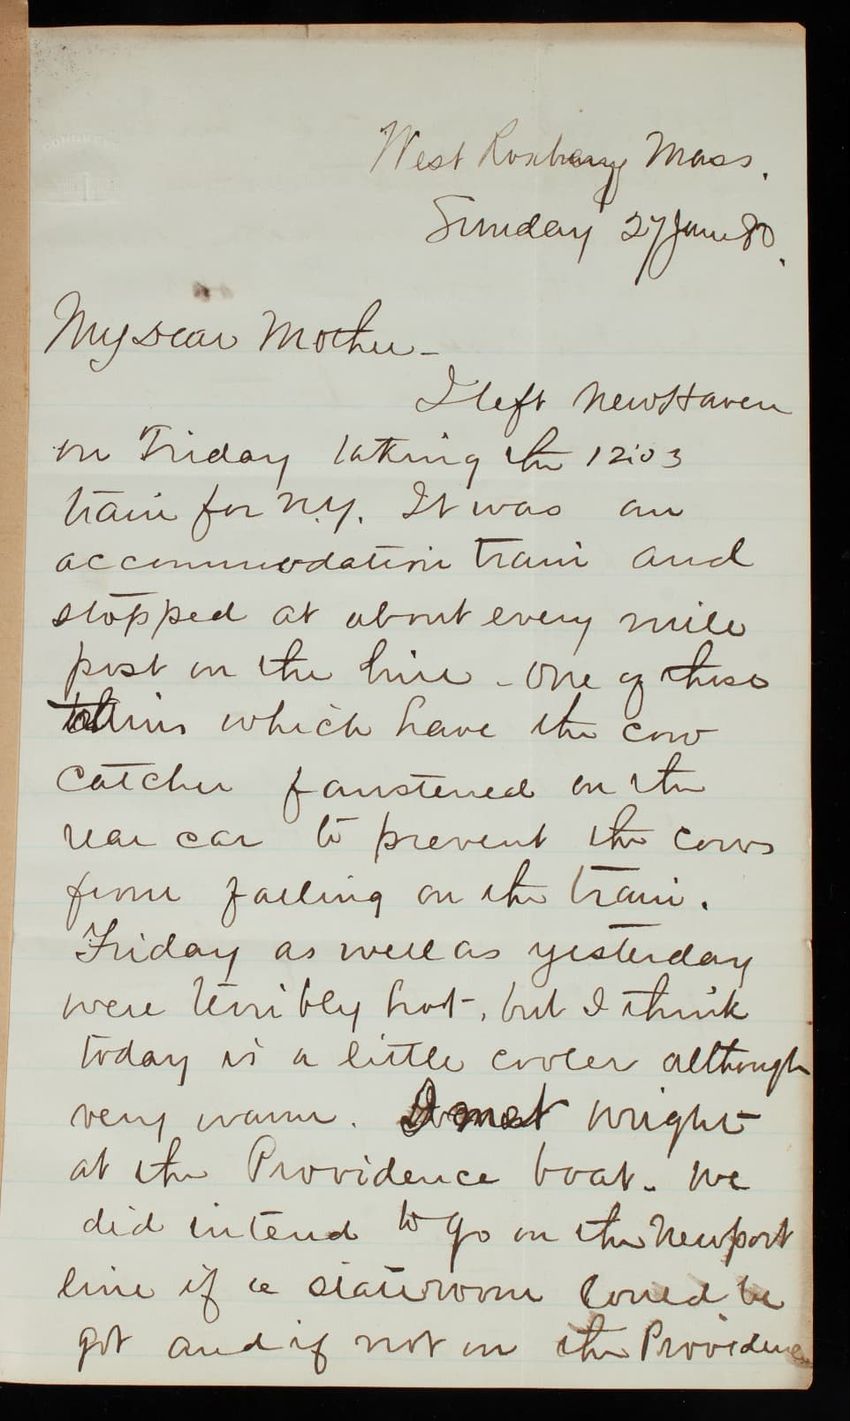 West Roxbury Mass.
Sunday 27 June 80.
My Dear Mother_
I left New Haven
on Friday taking the 12:03
train for N.Y. It was an
accommodation train and
stopped at about every mile
post on the line - one of those
trains which have the cow
catcher faustened on the
rear car to prevent the cows
from falling on the train.
Friday as well as yesterday
were terribly hot, but I think
today is a little cooler although
very warm. I met Wright
at the Providence boat. We
did intend to go on the Newport
line if a stateroom could be
got and if not on the Providence